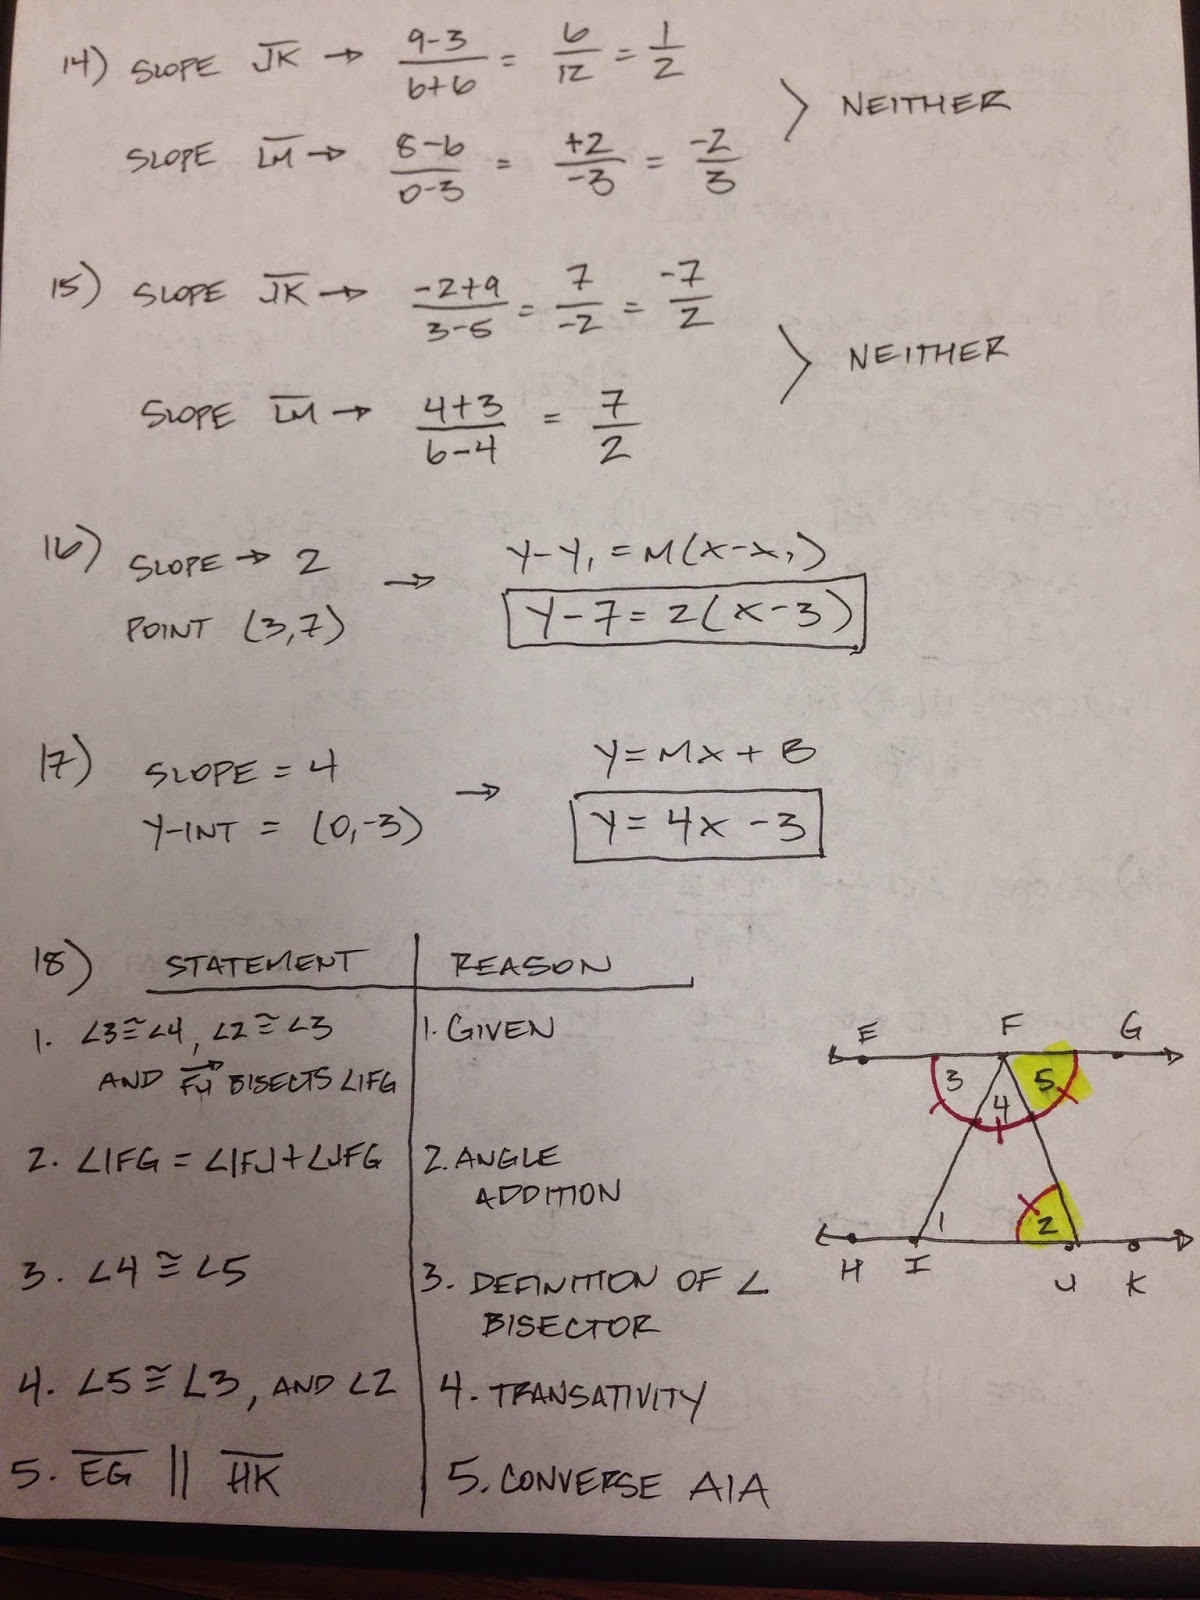 14) SLOPE JK → 9-3/6+6 = 6/12 = 1/2
SLOPE LM → 8-6/0-3 = +2/-3 = -2/3
> NEITHER
15) SLOPE JK → -2+9/3-5 = 7/-2 = -7/2
SLOPE LM → 4+3/6-4 = 7/2
> NEITHER
16) SLOPE → 2
POINT (3,7)
→ Y-Y₁ = M(X-X₁)
Y-7=2(X-3)
17) SLOPE = 4
Y-INT = (0,-3)
→ Y=MX+B
Y=4X-3
18) STATEMENT REASON
1. ∠3≅∠4, ∠2≅∠3 1. GIVEN
AND FJ BISECTS ∠IFG
2. ∠IFG = ∠IFJ+∠JFG 2. ANGLE
ADDITION
3. ∠4≅∠5 3. DEFINITION OF ∠
BISECTOR
4. ∠5≅∠3, AND ∠2 4. TRANSATIVITY
5. EG || HK 5. CONVERSE AIA
E F G
3 4 5
1 2
H I J K